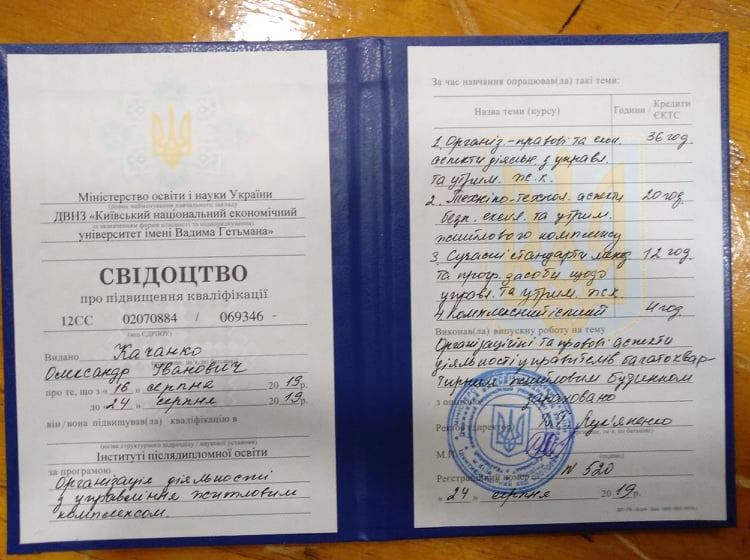 Міністерство освіти і науки України
(повне найменування навчального закладу
ДВНЗ «Київський національний економічний
із зазначенням форми власності та підпорядкування)
університет імені Вадима Гетьмана»
СВІДОЦТВО
про підвищення кваліфікації
12СС 02070884 / 069346 -
(код ЄДРПОУ)
Видано Качанко
Олександр Іванович
про те, що з «16» серпня 2019р.
до «24» серпня 2019р.
він/вона підвищував(ла) кваліфікацію в
(назва структурного підрозділу / наукової установи)
Інституті післядипломної освіти
за програмою
Організація діяльності
з управління житловим
комплексом.
За час навчання опрацював(ла) такі теми:
Назва теми (курсу) Години / Кредити ЄКТС
1. Організ.-правові та екон. 36 год.
аспекти діяльн. з управл.
та утрим. ж.к.
2. Техніко-технол. аспекти 20 год.
безп. експл. та утрим.
житлового комплексу
3. Сучасні стандарти менд 12 год.
та прогр. засоби щодо
управл. та утрим. ж.к.
4. Комплексний іспит 4 год
Виконав(ла) випускну роботу на тему
Організаційні та правові аспекти
діяльності управителів багатоквар-
тирним житловим будинком
з оцінкою зараховано
Ректор (директор) Лук'яненко
М.П. (підпис)
Реєстраційний номер N 520
«24» серпня 2019р.